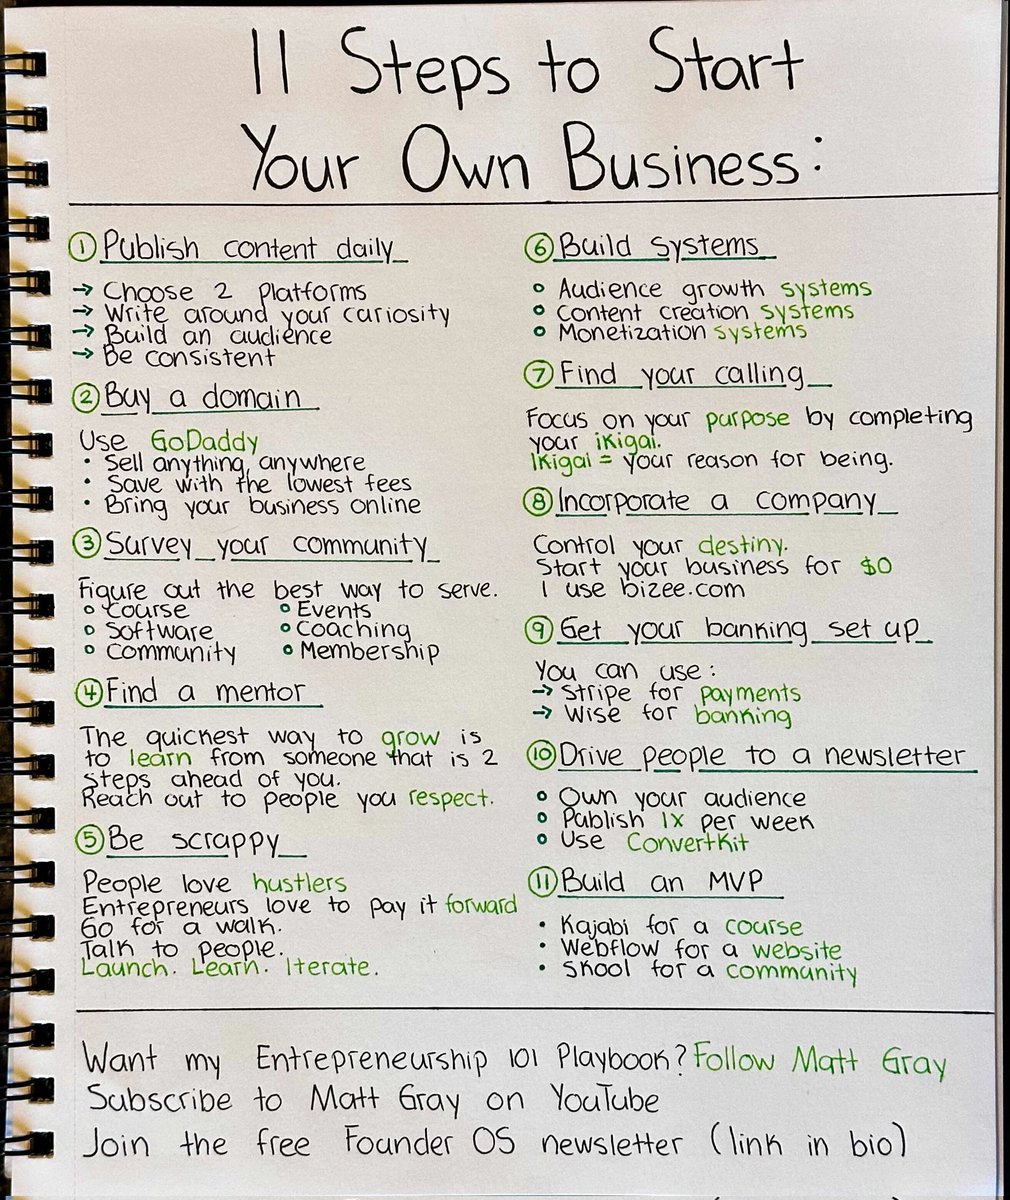 11 Steps to Start
Your Own Business:
① Publish content daily
→ Choose 2 platforms
→ Write around your curiosity
→ Build an audience
→ Be consistent
② Buy a domain
Use GoDaddy
• Sell anything, anywhere
• Save with the lowest fees
• Bring your business online
③ Survey your community
Figure out the best way to serve.
○ Course ○ Events
○ Software ○ Coaching
○ Community ○ Membership
④ Find a mentor
The quickest way to grow is
to learn from someone that is 2
steps ahead of you.
Reach out to people you respect.
⑤ Be scrappy
People love hustlers
Entrepreneurs love to pay it forward
Go for a walk.
Talk to people.
Launch. Learn. Iterate.
⑥ Build systems
○ Audience growth systems
○ Content creation systems
○ Monetization systems
⑦ Find your calling
Focus on your purpose by completing
your ikigai.
Ikigai = your reason for being.
⑧ Incorporate a company
Control your destiny.
Start your business for $0
I use bizee.com
⑨ Get your banking set up
You can use:
→ Stripe for payments
→ Wise for banking
⑩ Drive people to a newsletter
○ Own your audience
○ Publish 1x per week
○ Use ConvertKit
⑪ Build an MVP
• Kajabi for a course
• Webflow for a website
• Skool for a community
Want my Entrepreneurship 101 Playbook? Follow Matt Gray
Subscribe to Matt Gray on YouTube
Join the free Founder OS newsletter (link in bio)